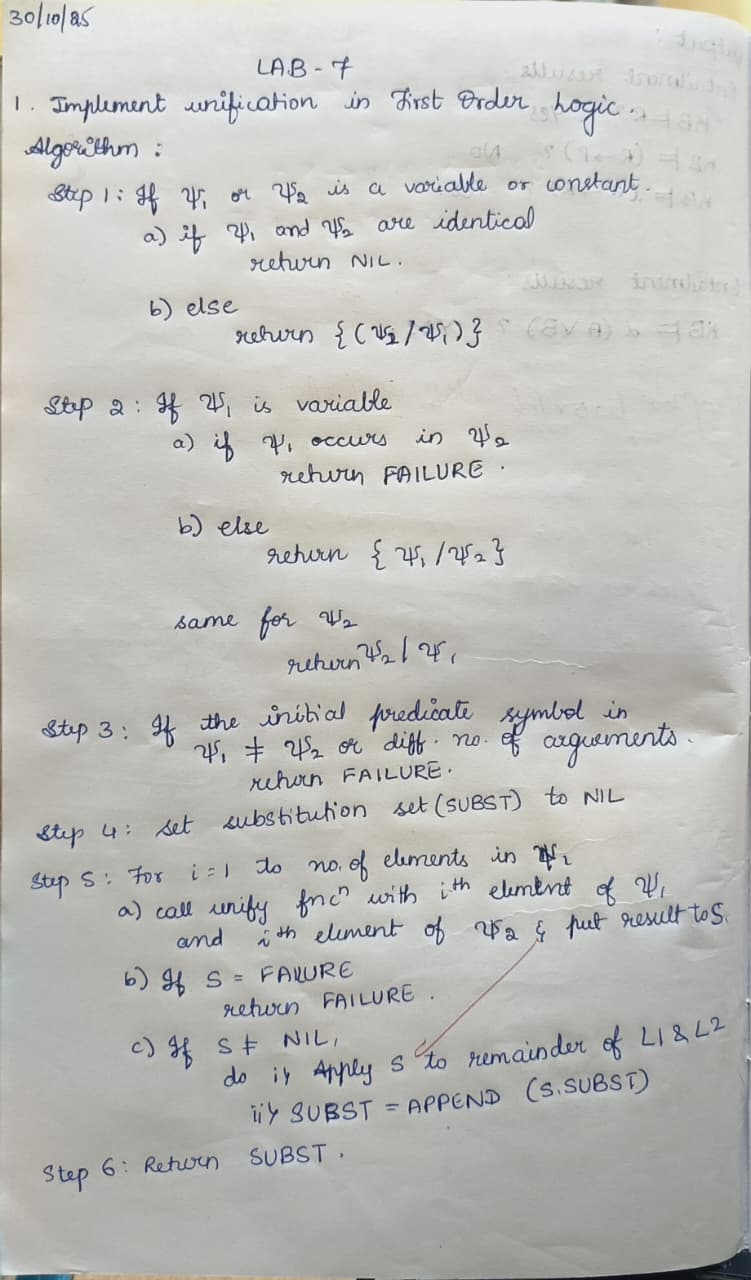 30/10/25
LAB - 7
1. Implement unification in First Order Logic.
Algorithm :
Step 1: If Ψ₁ or Ψ₂ is a variable or constant.
a) if Ψ₁ and Ψ₂ are identical
return NIL.
b) else
return {(Ψ₂/Ψ₁)}
Step 2: If Ψ₁ is variable
a) if Ψ₁ occurs in Ψ₂
return FAILURE.
b) else
return {Ψ₁/Ψ₂}
same for Ψ₂
return Ψ₂/Ψ₁
Step 3: If the initial predicate symbol in
Ψ₁ ≠ Ψ₂ or diff. no. of arguements.
return FAILURE.
Step 4: set substitution set (SUBST) to NIL
Step 5: For i=1 to no. of elements in Ψ₁
a) call unify fncⁿ with iᵗʰ element of Ψ₁
and iᵗʰ element of Ψ₂ & put result to S.
b) If S = FAILURE
return FAILURE.
c) If S ≠ NIL,
do i) Apply S to remainder of L1 & L2
ii) SUBST = APPEND (S.SUBST)
Step 6: Return SUBST.